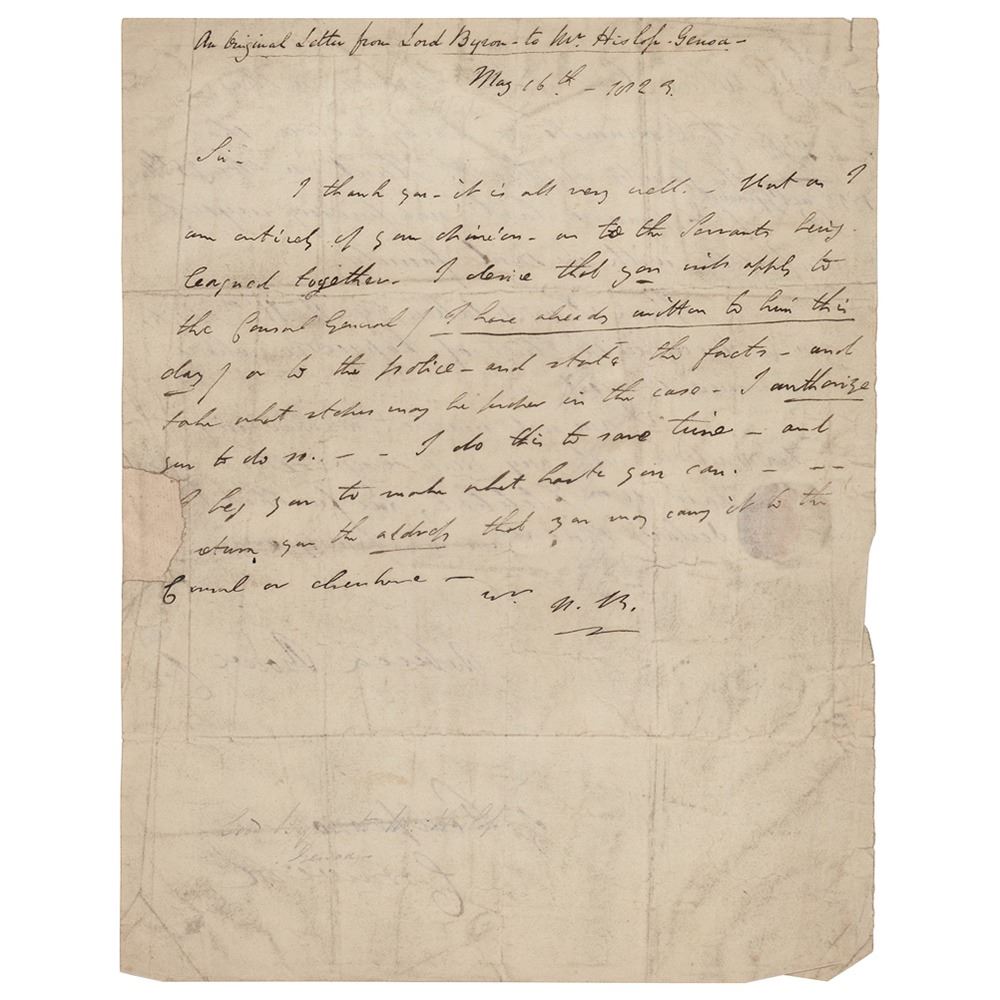 An Original Letter from Lord Byron - to Mr. Hislop - Genoa -
May 16th - 1823.
Sir -
I thank you - it is all very well. - But as I
am entirely of your opinion - as to the Servants being
leagued together - I desire that you will apply to
the Consul General / I have already written to him this
day / or to the police - and state the facts - and
take what steps may be proper in the case - I authorize
you to do so. - - I do this to save time - and
I beg you to make what haste you can. - - - -
return you the address that you may carry it to the
Consul or elsewhere -
yrs. N. B.
Lord Byron
Genoa